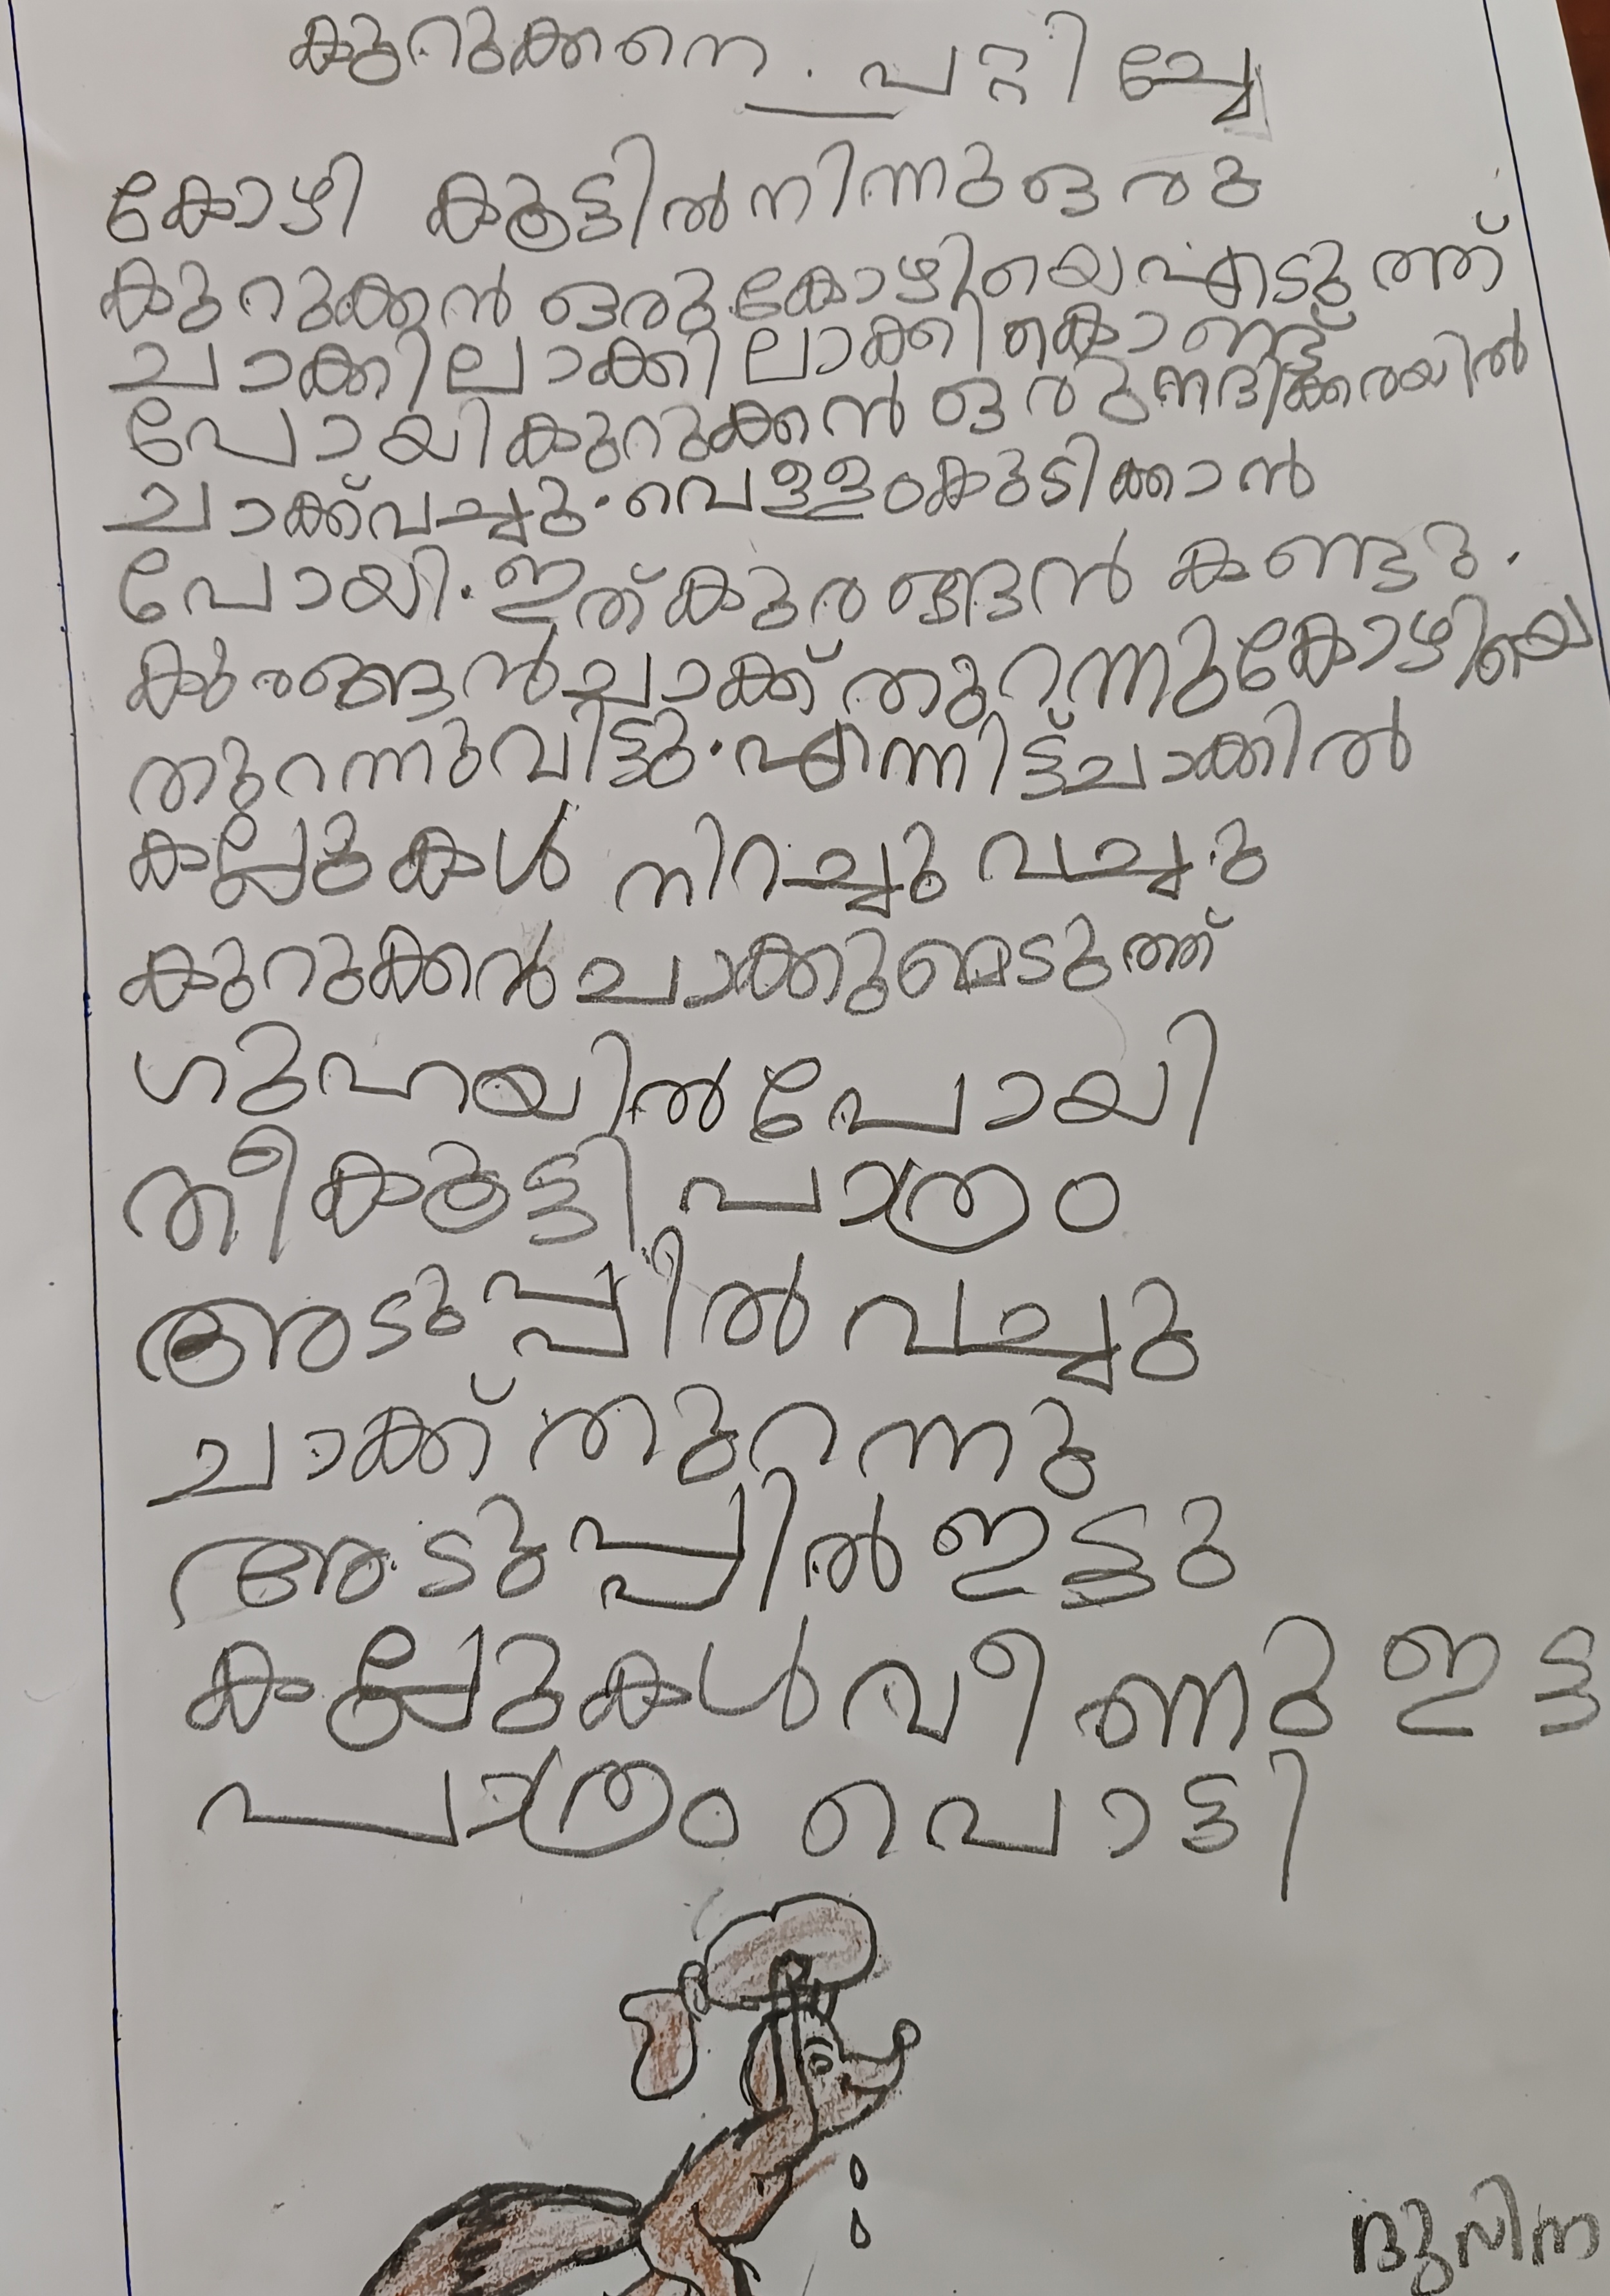 കുറുക്കനെ. പറ്റിച്ചേ
കോഴി കൂട്ടിൽ നിന്നു ഒരു
കുറുക്കൻ ഒരു കോഴിയെ എടുത്ത്
ചാക്കിലാക്കി ലാക്കി കൊണ്ട്
പോയി കുറുക്കൻ ഒരു നദിക്കരയിൽ
ചാക്ക് വച്ചു. വെള്ളം കുടിക്കാൻ
പോയി. ഇത് കുരങ്ങൻ കണ്ടു.
കുരങ്ങൻ ചാക്ക് തുറന്നു കോഴിയെ
തുറന്നു വിട്ടു. എന്നിട്ട് ചാക്കിൽ
കല്ലുകൾ നിറച്ചു വച്ചു
കുറുക്കൻ ചാക്കുമെടുത്ത്
ഗുഹയിൽ പോയി
തീ കൂട്ടി പാത്രം
അടുപ്പിൽ വച്ചു
ചാക്ക് തുറന്നു
അടുപ്പിൽ ഇട്ടു
കല്ലുകൾ വീണു ഇട്ട
പാത്രം പൊട്ടി